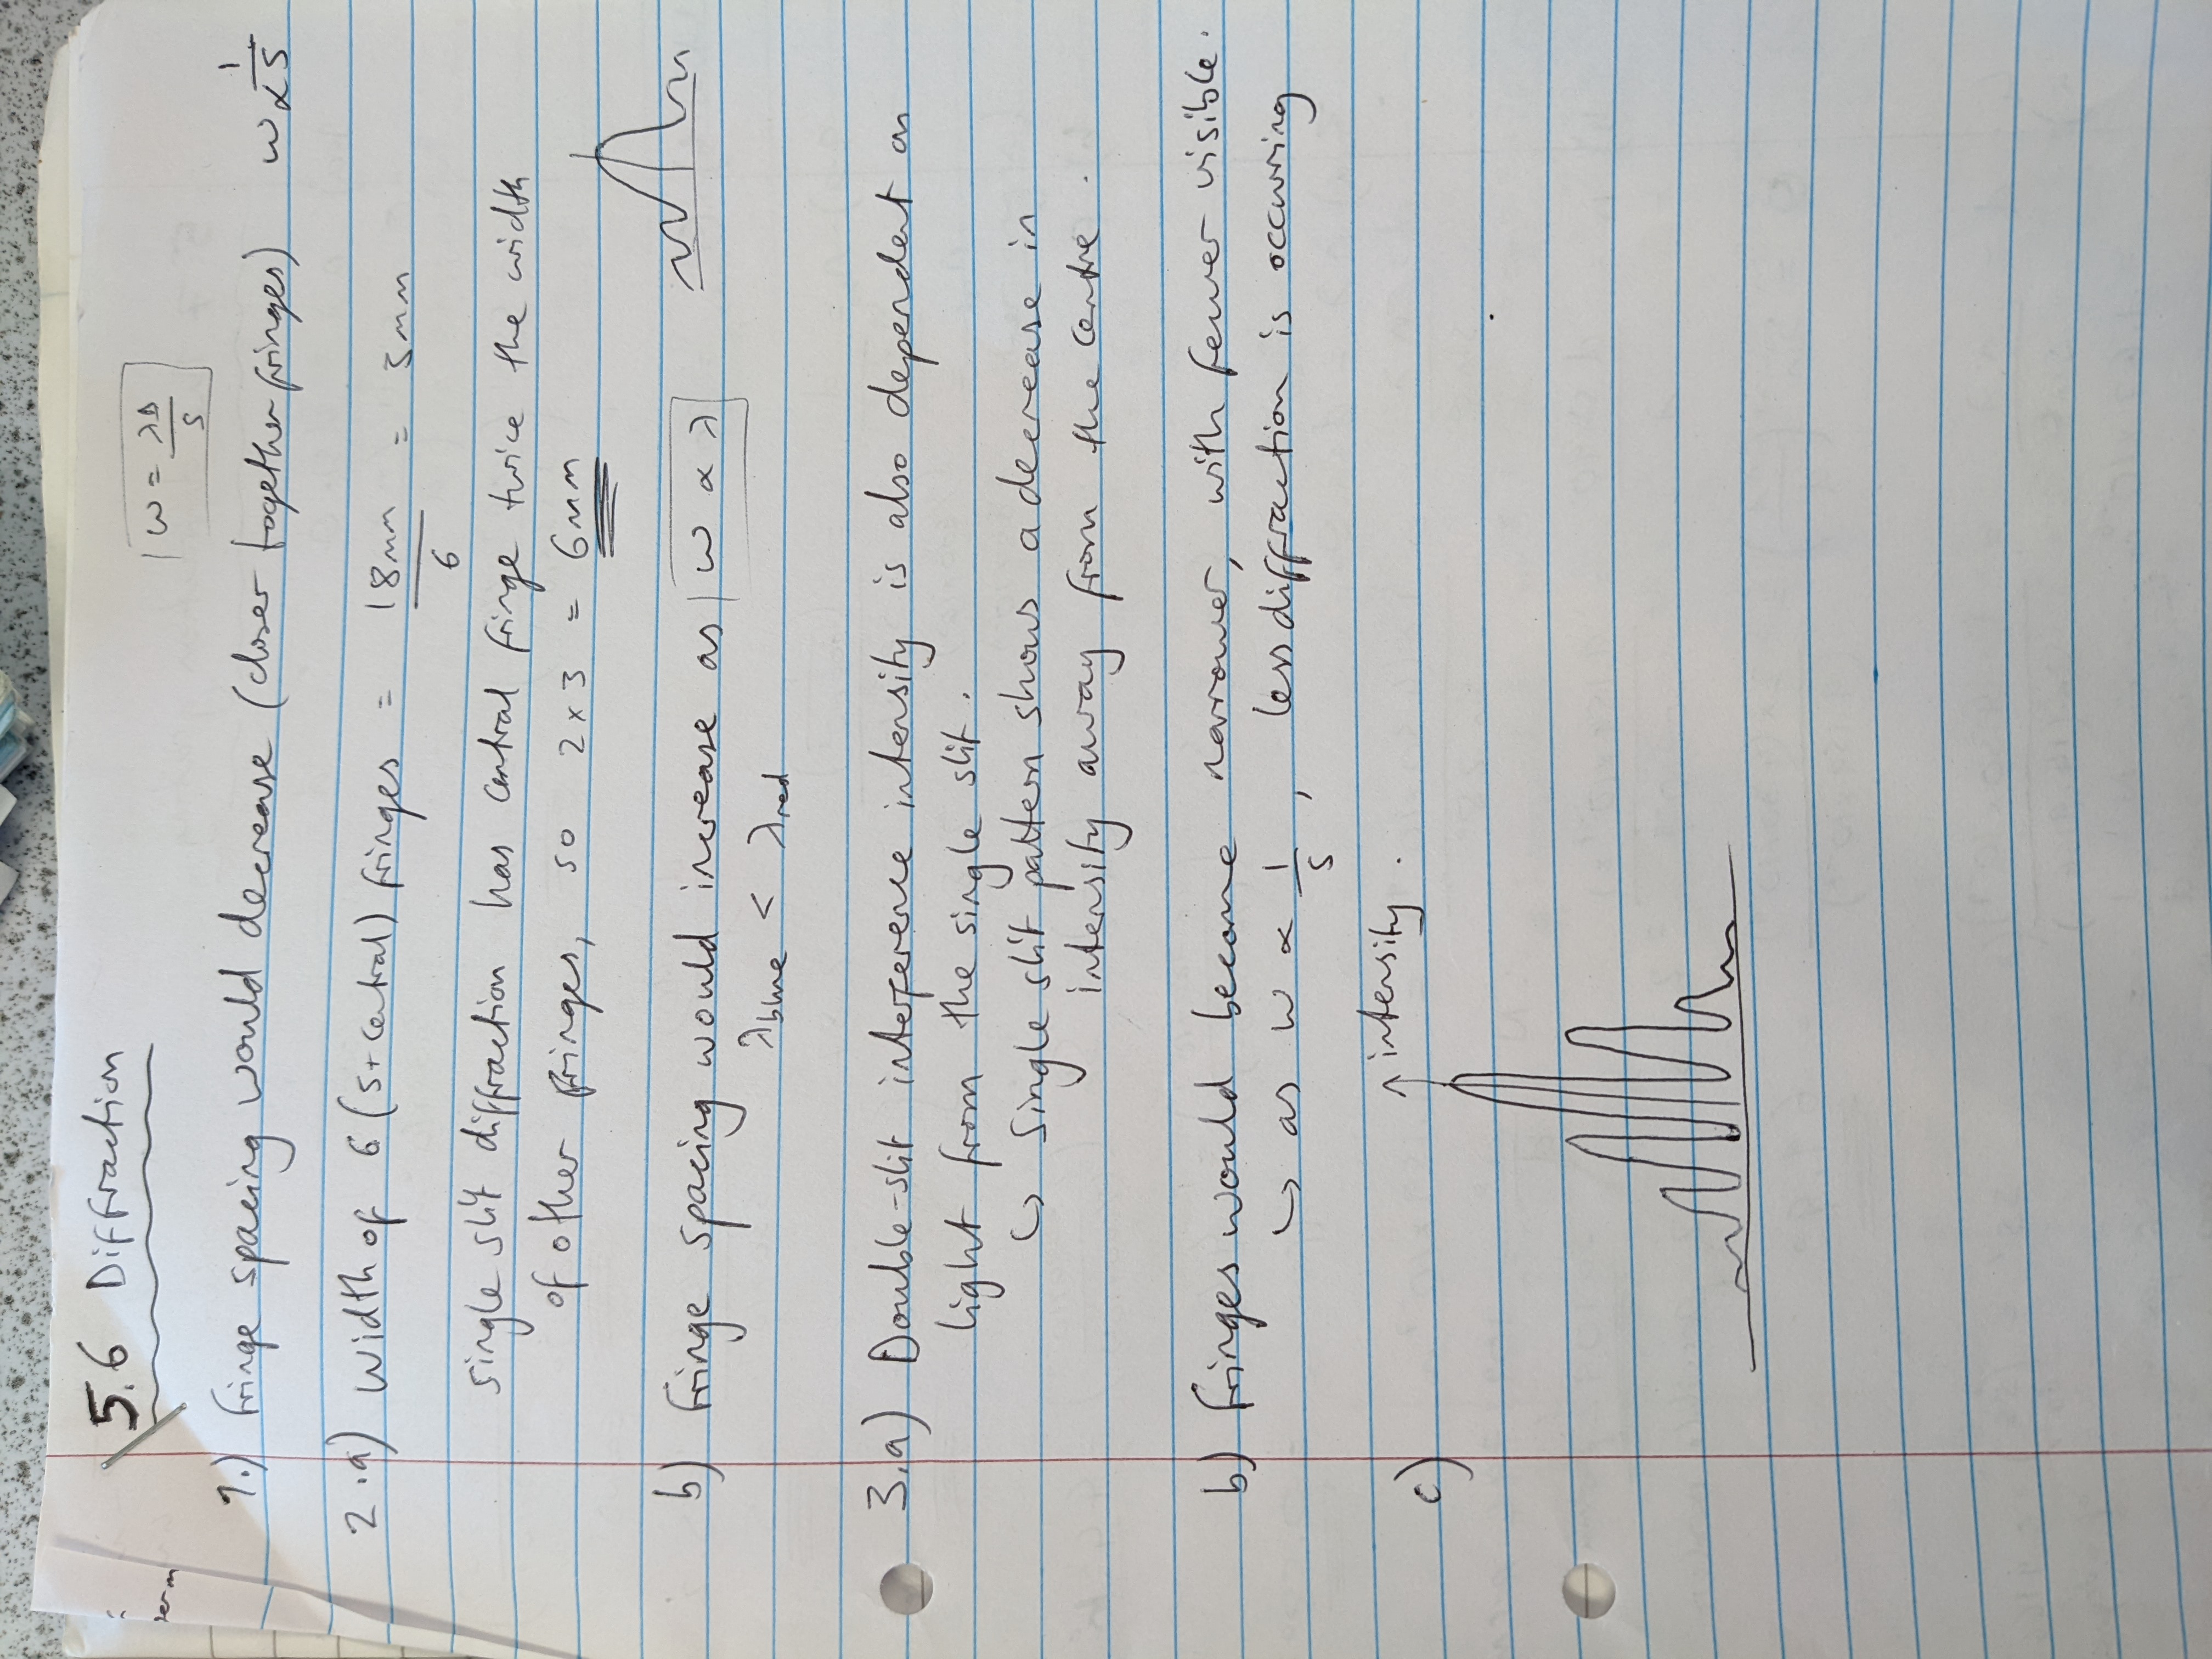 5.6 Diffraction
w = λD/s
1.) Fringe spacing would decrease (closer together fringes) w ∝ 1/s
2.a) Width of 6 (5+central) fringes = 18mm/6 = 3mm
single slit diffraction has central fringe twice the width
of other fringes, so 2 x 3 = 6mm
b) Fringe spacing would increase as w ∝ λ
λblue < λred
3.a) Double-slit interference intensity is also dependent on
light from the single slit.
↳ single slit pattern shows a decrease in
intensity away from the centre.
b) Fringes would become narrower, with fewer visible.
↳ as w ∝ 1/s, less diffraction is occurring
c) ↑ intensity.